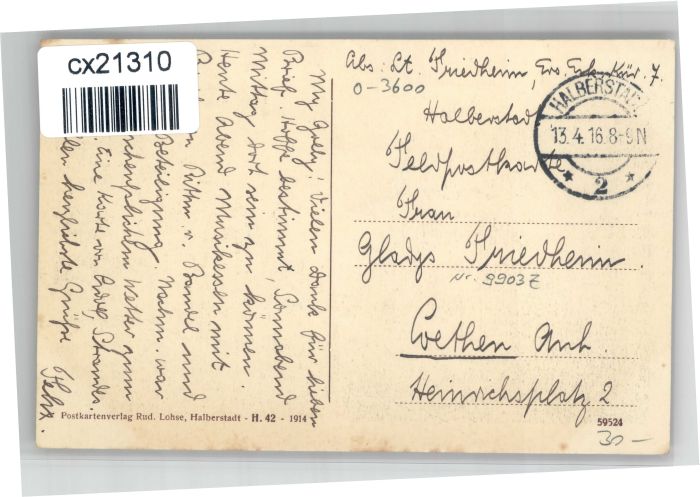 cx21310
Abs: Lt. Friedheim, Ers. Esk. Kür. 7.
0-3600
Halberstadt
HALBERSTADT
13.4.16.8-9N
* 2 *
Feldpostkarte.
Frau
Gladys Friedheim.
Nr. 9903Z
Coethen Anh.
Heinrichsplatz 2
My Girly! Vielen Dank für lieben
Brief. Hoffe bestimmt, Sonnabend
Mittag dort sein zu können.
Heute Abend Musikessen mit
v. Bandel und
Beteiligung. Nachm. war
Wetter zum
Eine Karte von
herzlichste Grüße
Felix.
Postkartenverlag Rud. Lohse, Halberstadt - H. 42 - 1914
59524
30-